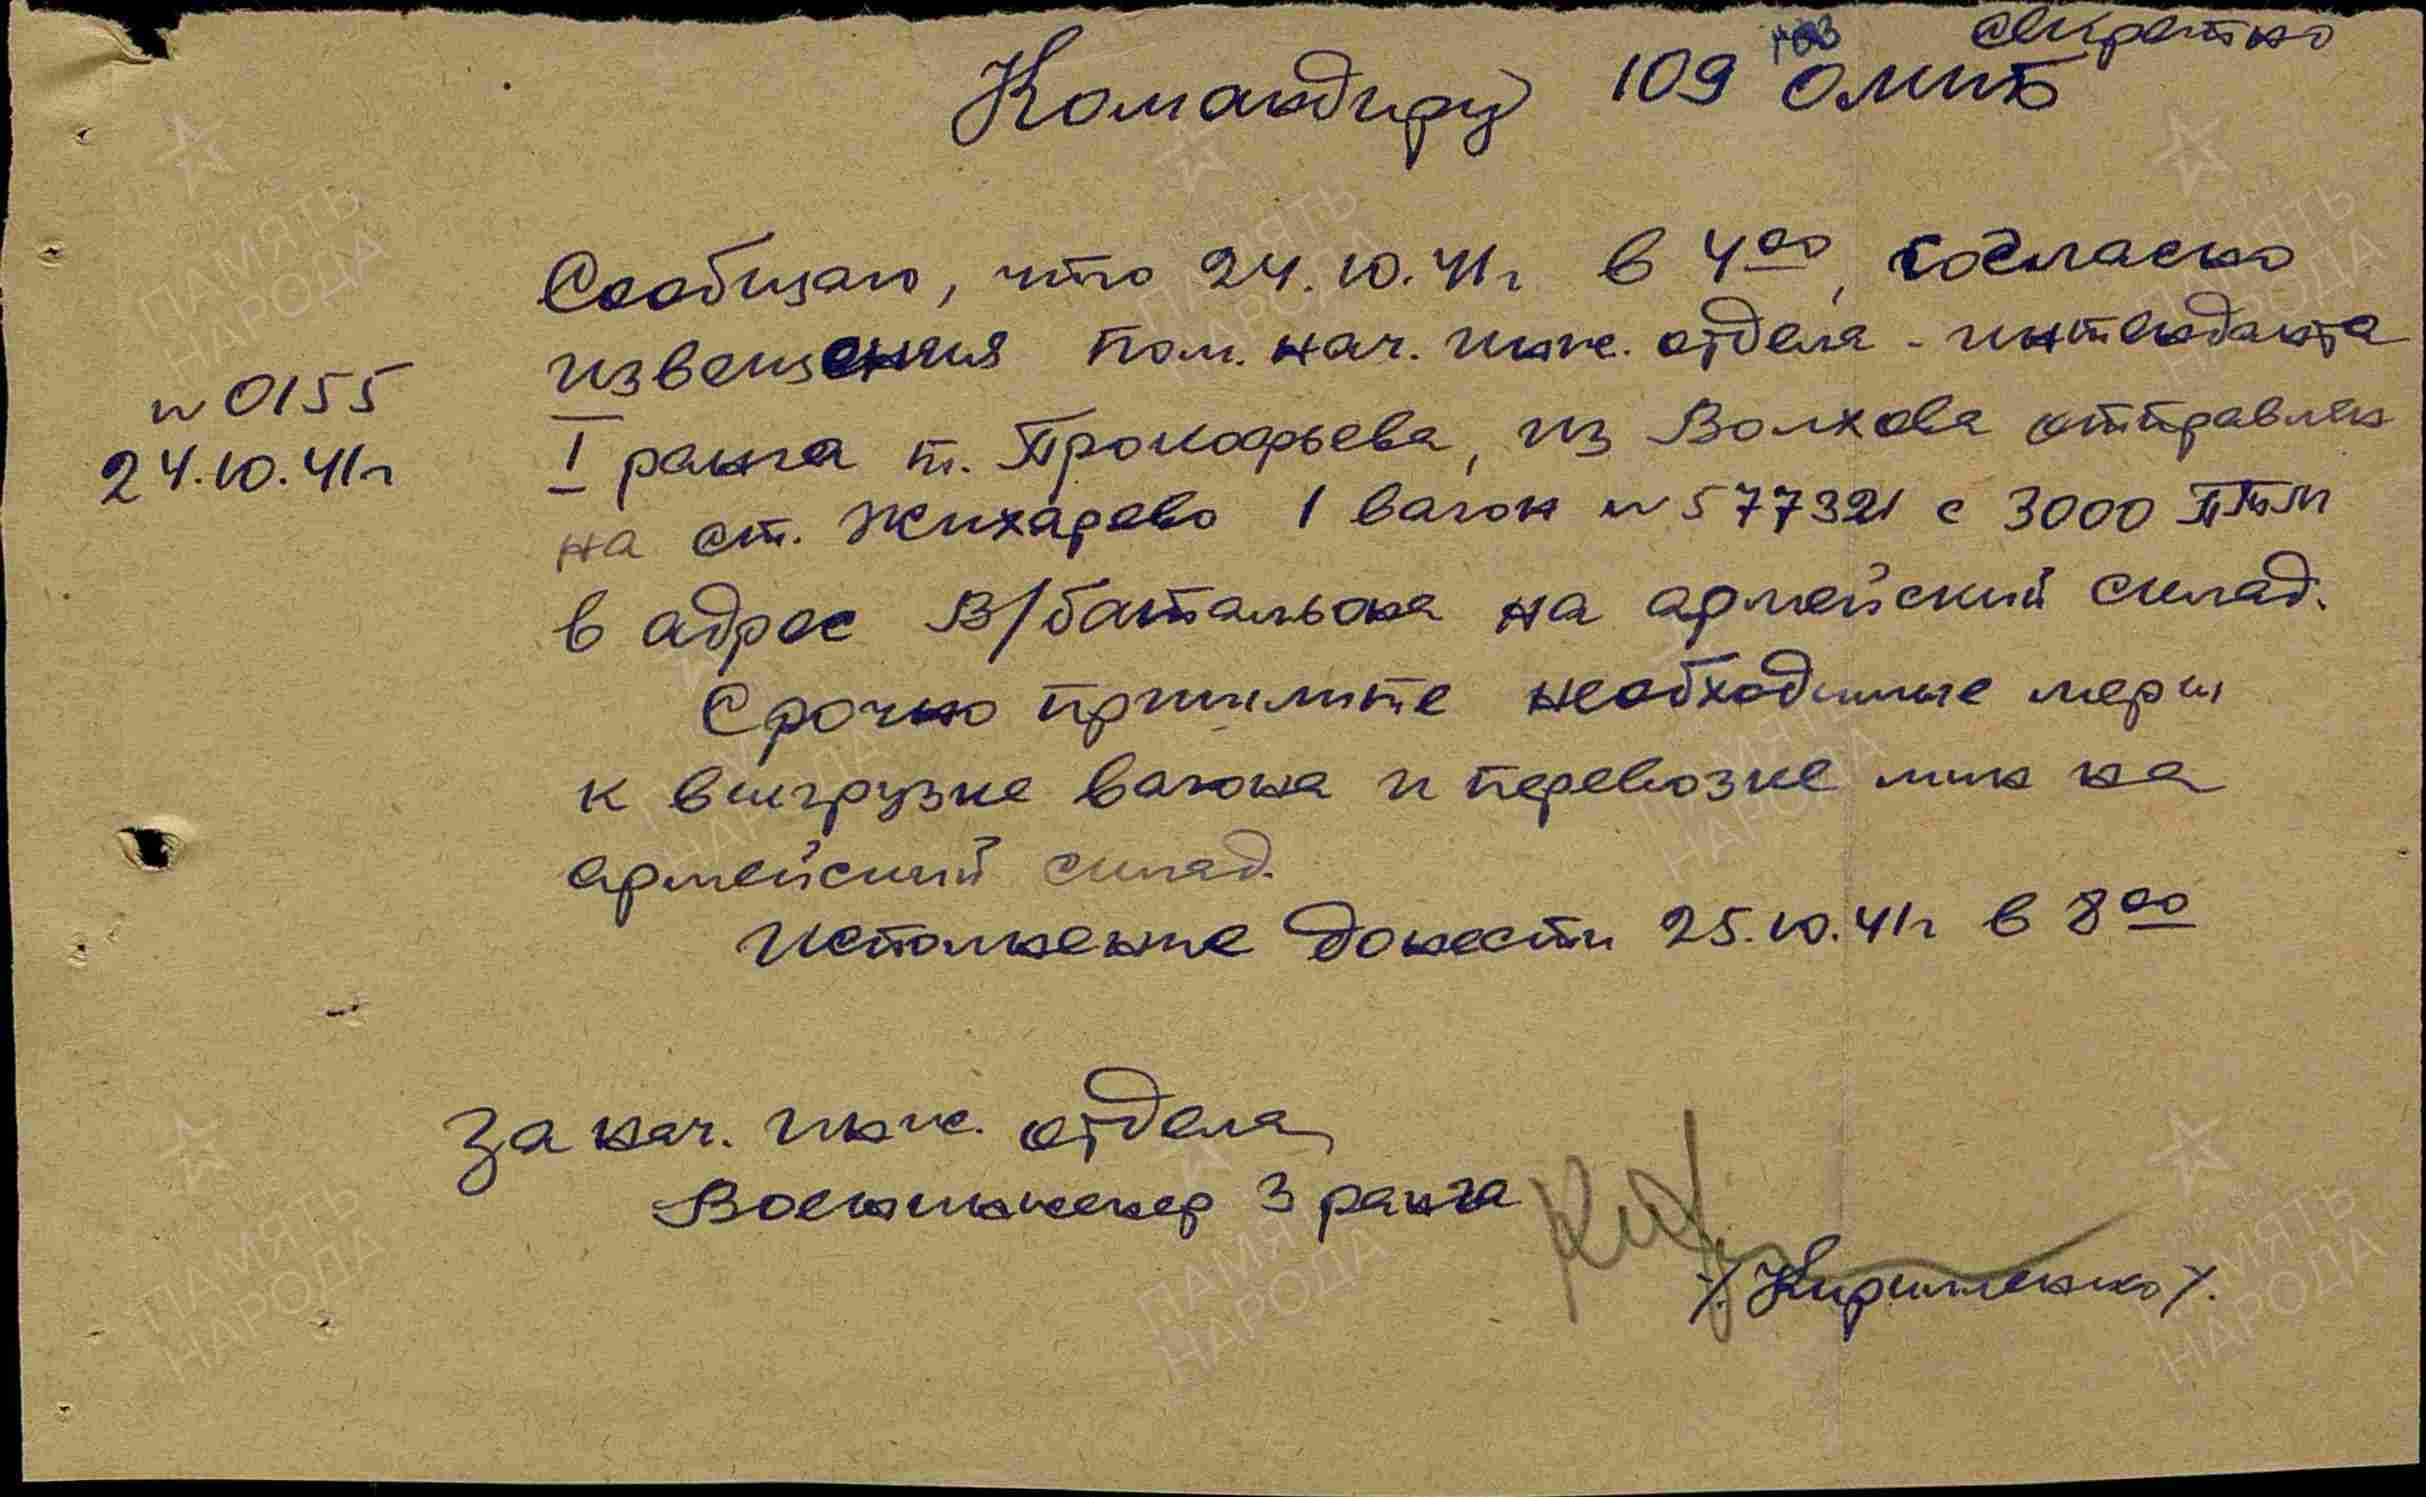 секретно
Командиру 109 ОМИБ
Сообщаю, что 24.10.41г в 4⁰⁰, согласно
извещения пом. нач. инж. отдела - интенданта
№ 0155
I ранга т. Прокофьева, из Волхова отправлен
24.10.41г
на ст. Жихарево 1 вагон № 577321 с 3000 ПТМ
в адрес В/батальона на армейский склад.
Срочно примите необходимые меры
к выгрузке вагона и перевозке мин на
армейский склад.
Исполнение донести 25.10.41г в 8⁰⁰
За нач. инж. отдела
Военинженер 3 ранга
/Кириленко/.
ПАМЯТЬ
НАРОДА